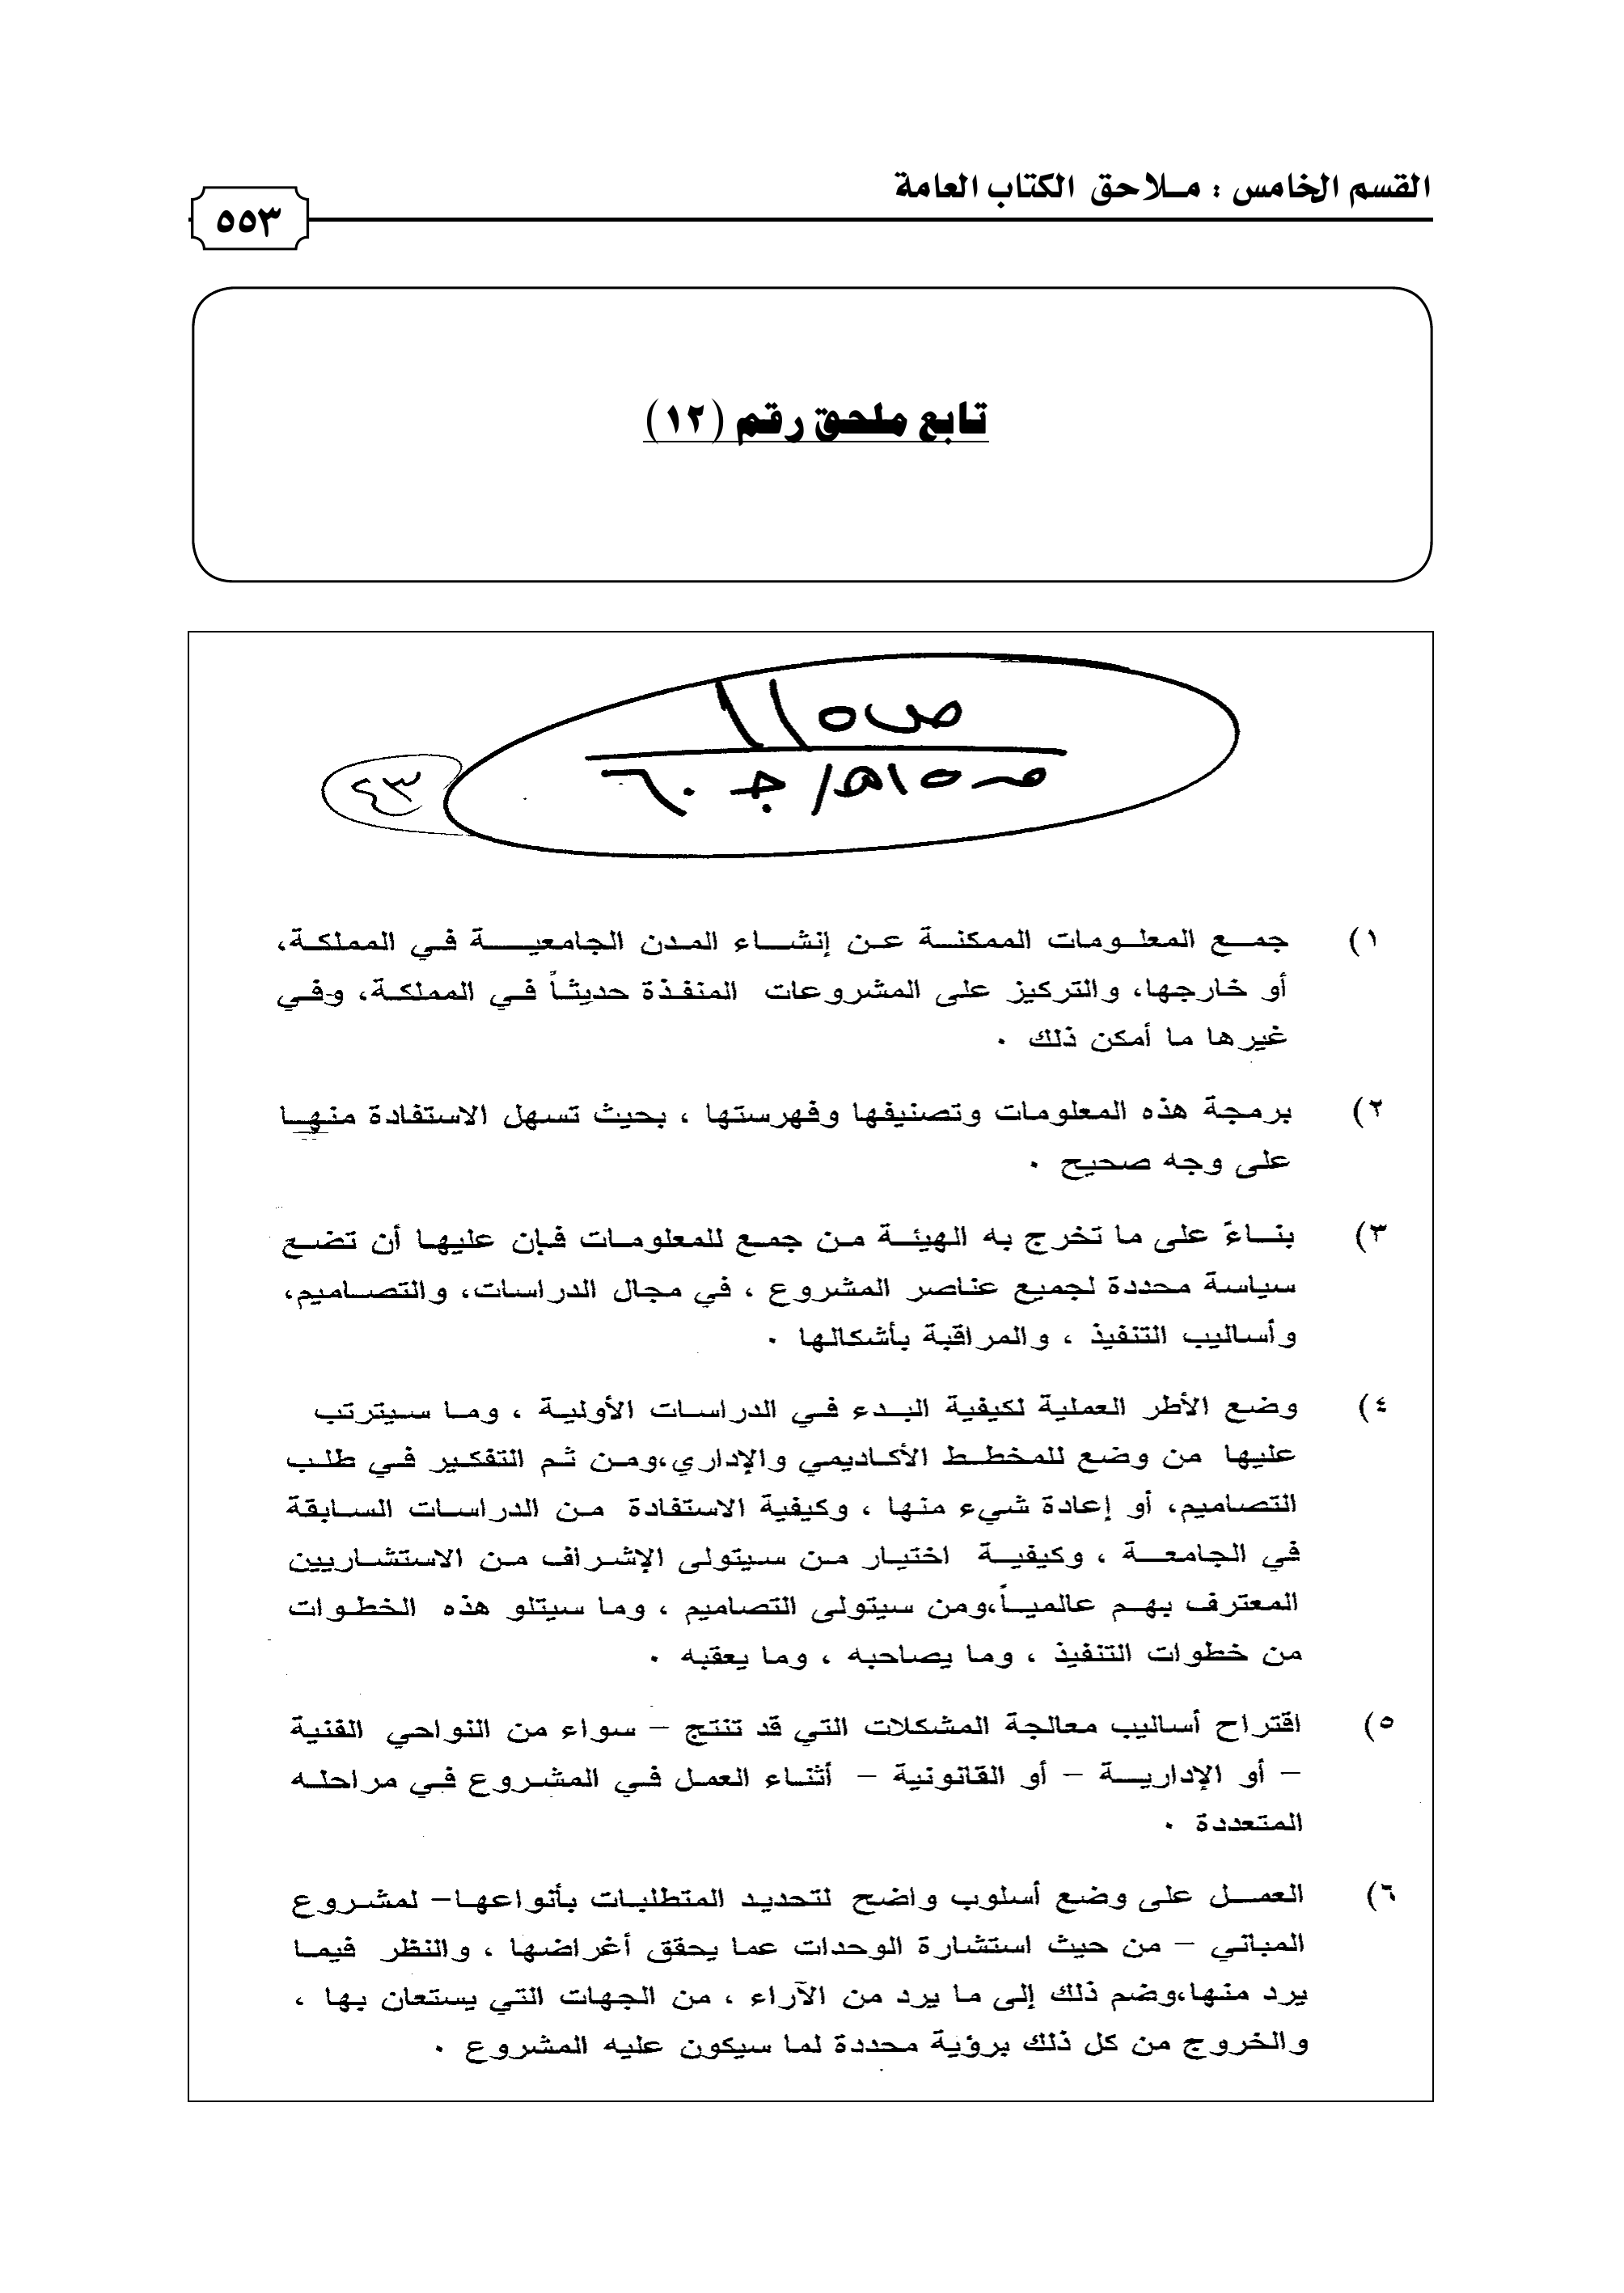 القسم الخامس : مـلاحق الكتاب العامة
٥٥٣
تابع ملحق رقم (١٢)
ص ١١٥
٤٣
١) جمـع المعلـومات الممكنـة عـن إنشـاء المـدن الجامعيـة فـي المملكـة،
أو خارجها، والتركيز على المشروعات المنفـذة حديثـاً فـي المملكـة، وفـي
غيرها ما أمكن ذلك .
٢) برمجة هذه المعلومات وتصنيفها وفهرستها ، بحيث تسهل الاستفادة منهـا
على وجه صحيح .
٣) بنـاءً على ما تخرج به الهيئـة مـن جمـع للمعلومـات فـإن عليهـا أن تضـع
سياسة محددة لجميع عناصر المشروع ، في مجال الدراسات، والتصـاميم،
وأساليب التنفيذ ، والمراقبة بأشكالها .
٤) وضع الأطر العملية لكيفية البـدء فـي الدراسـات الأوليـة ، ومـا سـيترتب
عليها من وضع للمخطـط الأكـاديمي والإداري،ومـن ثـم التفكـير فـي طلـب
التصاميم، أو إعادة شيء منها ، وكيفية الاستفادة مـن الدراسـات السـابقة
في الجامعـة ، وكيفيـة اختيـار مـن سـيتولى الإشـراف مـن الاستشـاريين
المعترف بهـم عالميـاً،ومن سيتولى التصاميم ، وما سيتلو هذه الخطـوات
من خطوات التنفيذ ، وما يصاحبه ، وما يعقبه .
٥) اقتراح أساليب معالجة المشكلات التي قد تنتج – سواء من النواحي الفنية
– أو الإداريـة – أو القانونية – أثنـاء العمـل فـي المشـروع فـي مراحلـه
المتعددة .
٦) العمـل على وضع أسلوب واضح لتحديد المتطلبـات بأنواعهـا– لمشـروع
المباني – من حيث استشارة الوحدات عما يحقق أغراضها ، والنظر فيمـا
يرد منها،وضم ذلك إلى ما يرد من الآراء ، من الجهات التي يستعان بها ،
والخروج من كل ذلك برؤية محددة لما سيكون عليه المشروع .